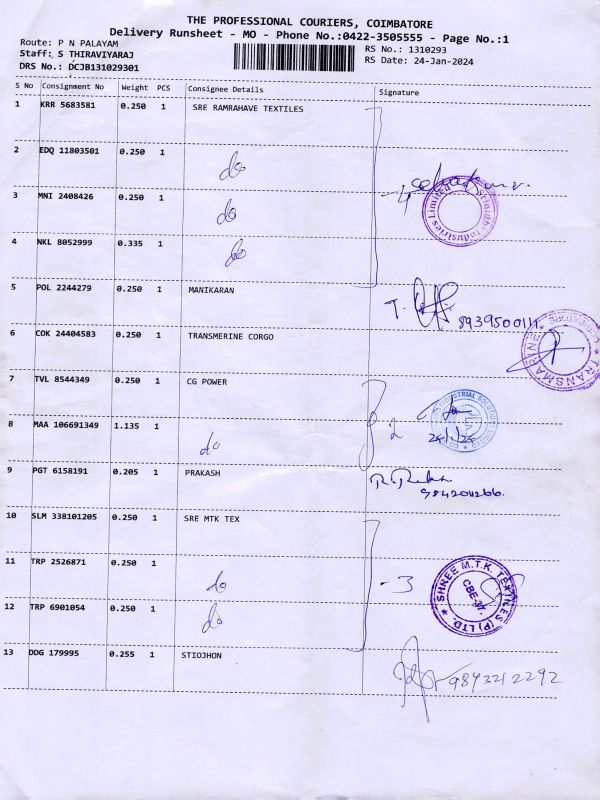 THE PROFESSIONAL COURIERS, COIMBATORE
Delivery Runsheet - MO - Phone No.:0422-3505555 - Page No.:1
Route: P N PALAYAM
Staff: S THIRAVIYARAJ
DRS No.: DCJB131029301
RS No.: 1310293
RS Date: 24-Jan-2024
S No Consignment No Weight PCS Consignee Details Signature
1 KRR 5683581 0.250 1 SRE RAMRAHAVE TEXTILES
2 EDQ 11803501 0.250 1 do
3 MNI 2408426 0.250 1 do
4 NKL 8052999 0.335 1 do
- 4
5 POL 2244279 0.250 1 MANIKARAN
8939500111
6 COK 24404583 0.250 1 TRANSMERINE CORGO
TRANSMARINE
7 TVL 8544349 0.250 1 CG POWER
8 MAA 106691349 1.135 1 do
2
24/1/24
9 PGT 6158191 0.205 1 PRAKASH
10 SLM 338101205 0.250 1 SRE MTK TEX
11 TRP 2526871 0.250 1 do
- 3
SHREE M.T.K. TEXTILES (P) LTD.
CBE-37.
12 TRP 6901054 0.250 1 do
13 DDG 179995 0.255 1 STIOJHON
9843212292